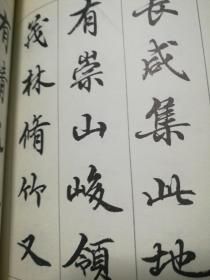 長咸集此地
有崇山峻領
茂林脩竹又